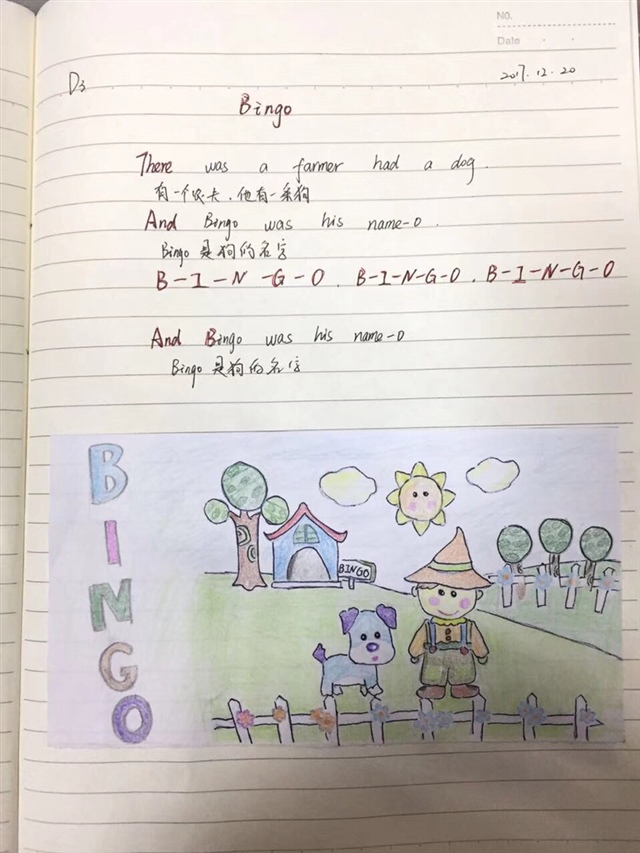 No.
Date
D3
2017.12.20
Bingo
There was a farmer had a dog.
有一个农夫,他有一条狗
And Bingo was his name-O.
Bingo 是狗的名字
B-I-N-G-O. B-I-N-G-O. B-I-N-G-O
And Bingo was his name-O
Bingo 是狗的名字
BINGO
BINGO